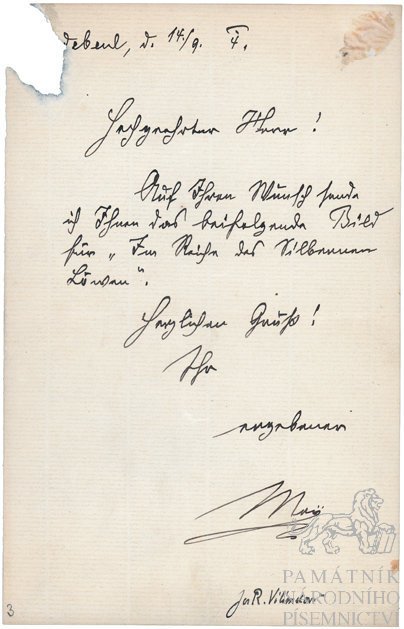 debeul, d. 14./9. 4.
Hochgeehrter Herr!
Auf Ihren Wunsch sende
ich Ihnen das beifolgende Bild
für „Im Reiche des Silbernen
Löwen“.
Herzlichen Gruß!
Ihr
ergebener
May
Jos R.
3
PAMÁTNÍK
NÁRODNÍHO
PÍSEMNICTVÍ